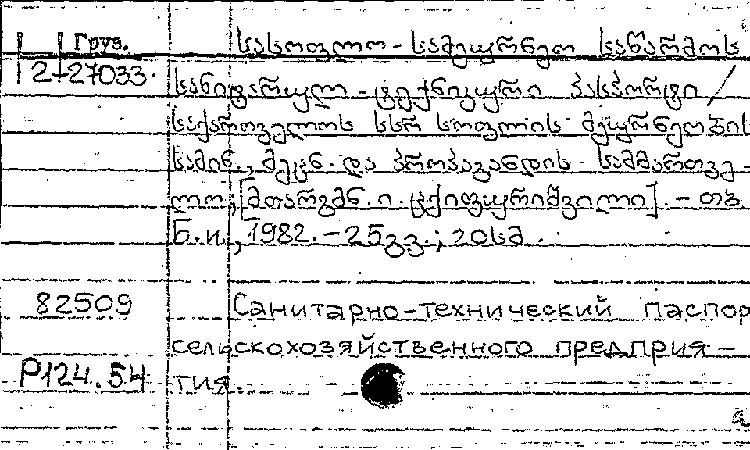 Груз.
2-27033.
სასოფლო-სამეურნეო საწარმოს
სანიტარულ-ტექნიკური პასპორტი /
საქართველოს სსრ სოფლის მეურნეობის
სამინ., მეცნ. და პროპაგანდის სამმართვე-
ლო; [მთარგმნ. ი. ექიფურიშვილი]. - თბ.
Б.и., 1982. - 25გვ.; 20სმ.
82509
Санитарно-технический паспор
сельскохозяйственного предприя-
P124.54
тия.